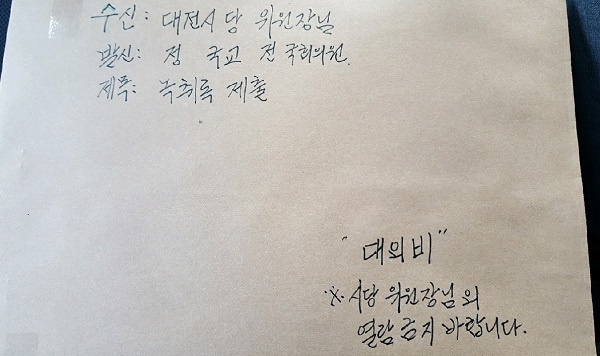 수신: 대전시당 위원장님
발신: 정 국교 전 국회의원.
제목: 녹취록 제출
"대외비"
※ 시당 위원장님 외
열람 금지 바랍니다.